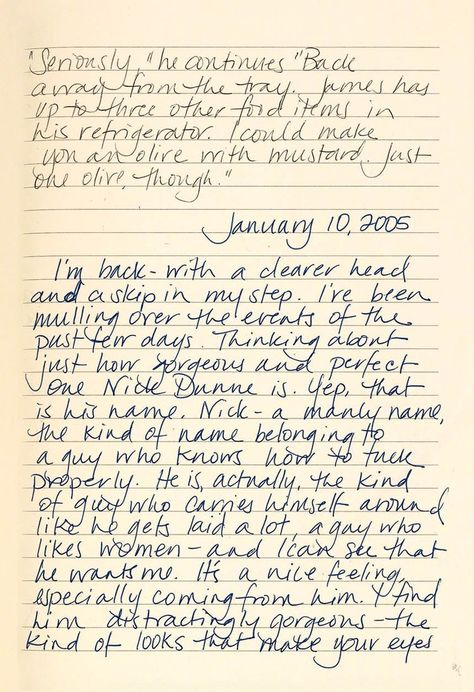 "Seriously," he continues "Back
away from the tray. James has
up to three other food items in
his refrigerator. I could make
you an olive with mustard. Just
one olive, though."
January 10, 2005
I'm back - with a clearer head
and a skip in my step. I've been
mulling over the events of the
past few days. Thinking about
just how gorgeous and perfect
one Nick Dunne is. Yep, that
is his name. Nick - a manly name,
the kind of name belonging to
a guy who knows how to fuck
properly. He is, actually, the kind
of guy who carries himself around
like he gets laid a lot, a guy who
likes women - and I can see that
he wants me. It's a nice feeling,
especially coming from him. I find
him distractingly gorgeous - the
kind of looks that make your eyes